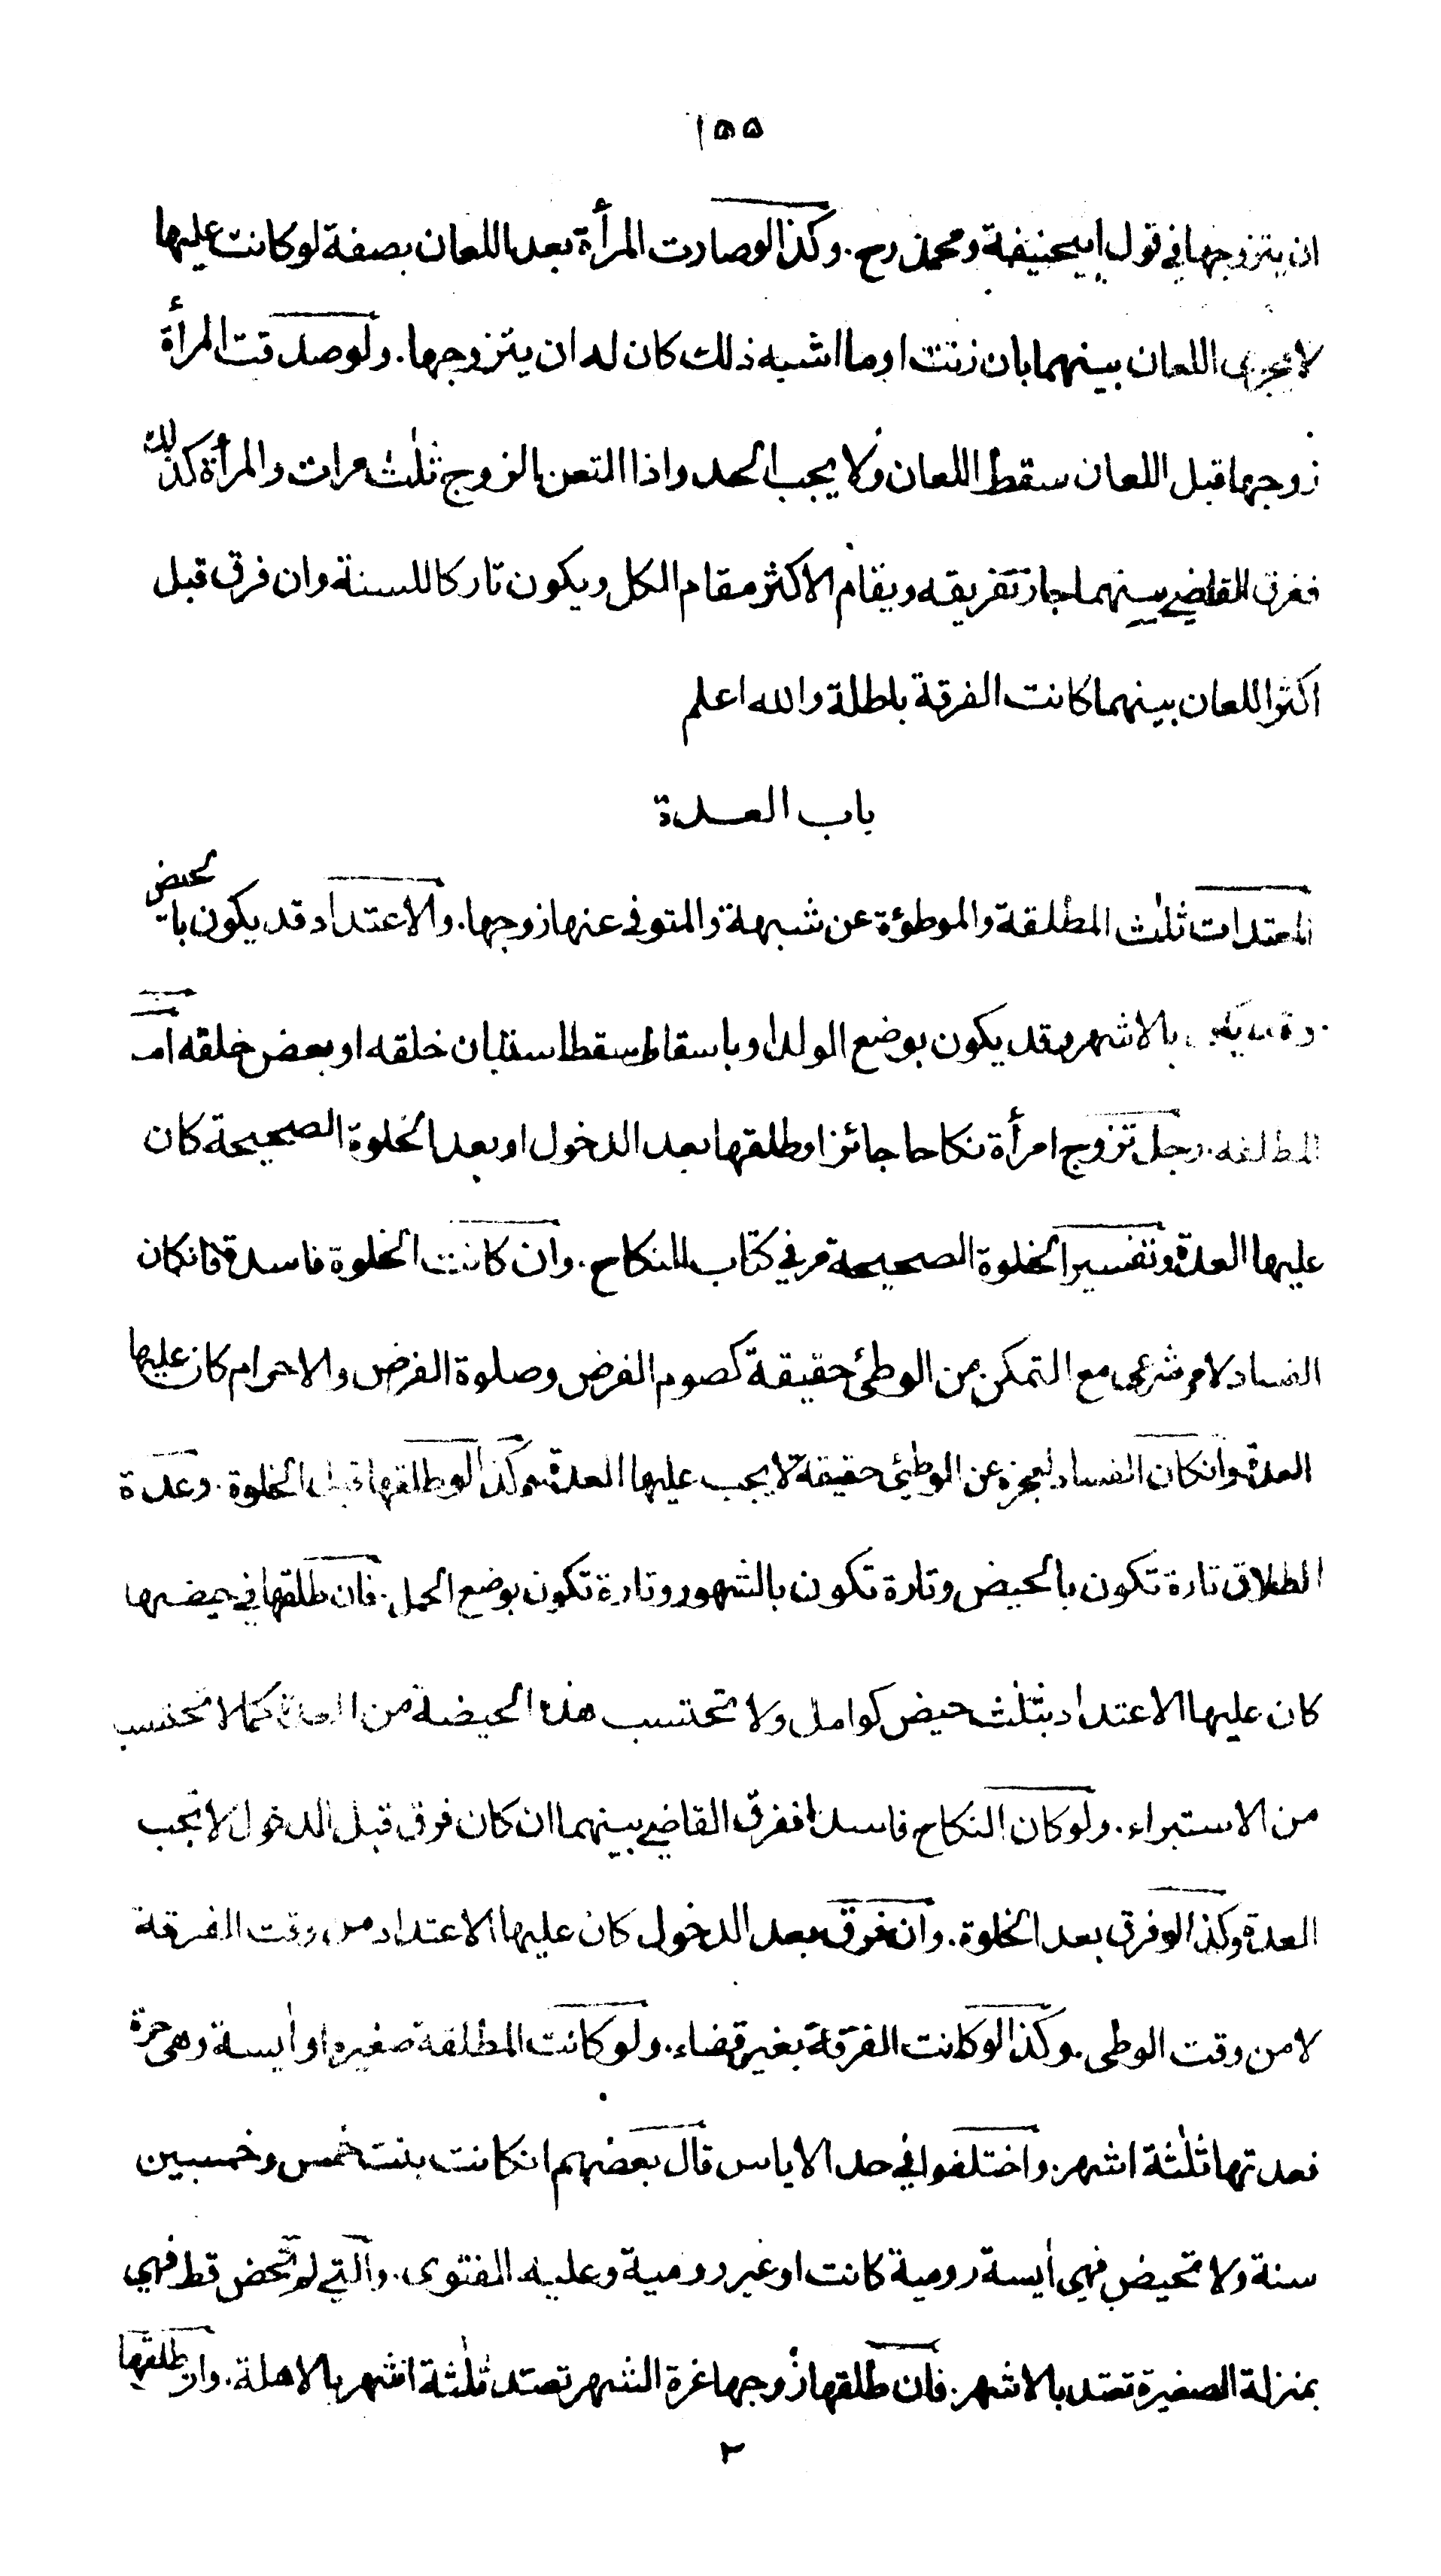 ١٥٥
ان يتزوجها في قول ابيحنيفة ومحمد رح. وكذا لو صارت المرأة بعد اللعان بصفة لو كانت عليها
لا يجرى اللعان بينهما بان زنت او ما اشبه ذلك كان له ان يتزوجها. ولو صدقت المرأة
زوجها قبل اللعان سقط اللعان ولا يجب الحد واذا التعن الزوج ثلٰث مرات والمرأة كذلك
ففرق القاضي بينهما جاز تفريقه ويقام الاكثر مقام الكل ويكون تاركا للسنة وان فرق قبل
اكثر اللعان بينهما كانت الفرقة باطلة والله اعلم
باب العدة
المعتدات ثلٰث المطلقة والموطؤة عن شبهة والمتوفى عنها زوجها. والاعتداد قد يكون بالحيض
وقد يكون بالاشهر وقد يكون بوضع الولد او باسقاط سقط استبان خلقه او بعض خلقه اما
المطلقه. رجل تزوج امرأة نكاحا جائزا وطلقها بعد الدخول او بعد الخلوة الصحيحة كان
عليها العدة وتفسير الخلوة الصحيحة مر في كتاب النكاح. وان كانت الخلوة فاسدة فانكان
الفساد لامر شرعى مع التمكن من الوطئ حقيقة كصوم الفرض وصلوة الفرض والاحرام كان عليها
العدة وانكان الفساد لعجزه عن الوطئ حقيقة لا يجب عليها العدة وكذا لو طلقها قبل الخلوة. وعدة
الطلاق تارة تكون بالحيض وتارة تكون بالشهور وتارة تكون بوضع الحمل. فان طلقها في حيضها
كان عليها الاعتداد بثلٰث حيض كوامل ولا تحتسب هذه الحيضة من العدة كما لا تحتسب
من الاستبراء. ولو كان النكاح فاسدا ففرق القاضي بينهما ان كان فرق قبل الدخول لا تجب
العدة وكذا لو فرق بعد الخلوة. وان فرق بعد الدخول كان عليها الاعتداد من وقت الفرقة
لا من وقت الوطى. وكذا لو كانت الفرقة بغير قضاء. ولو كانت المطلقة صغيرة او اٰيسة وهى حرة
فعدتها ثلٰثة اشهر. واختلفوا في حد الاياس قال بعضهم انكانت بنت خمس وخمسين
سنة ولا تحيض فهى اٰيسة رومية كانت او غير رومية وعليه الفتوى. والتي لم تحض قط فهي
بمنزلة الصغيرة تعتد بالاشهر. فان طلقها زوجها غرة الشهر تعتد ثلٰثة اشهر بالاهلة. وان طلقها
٢